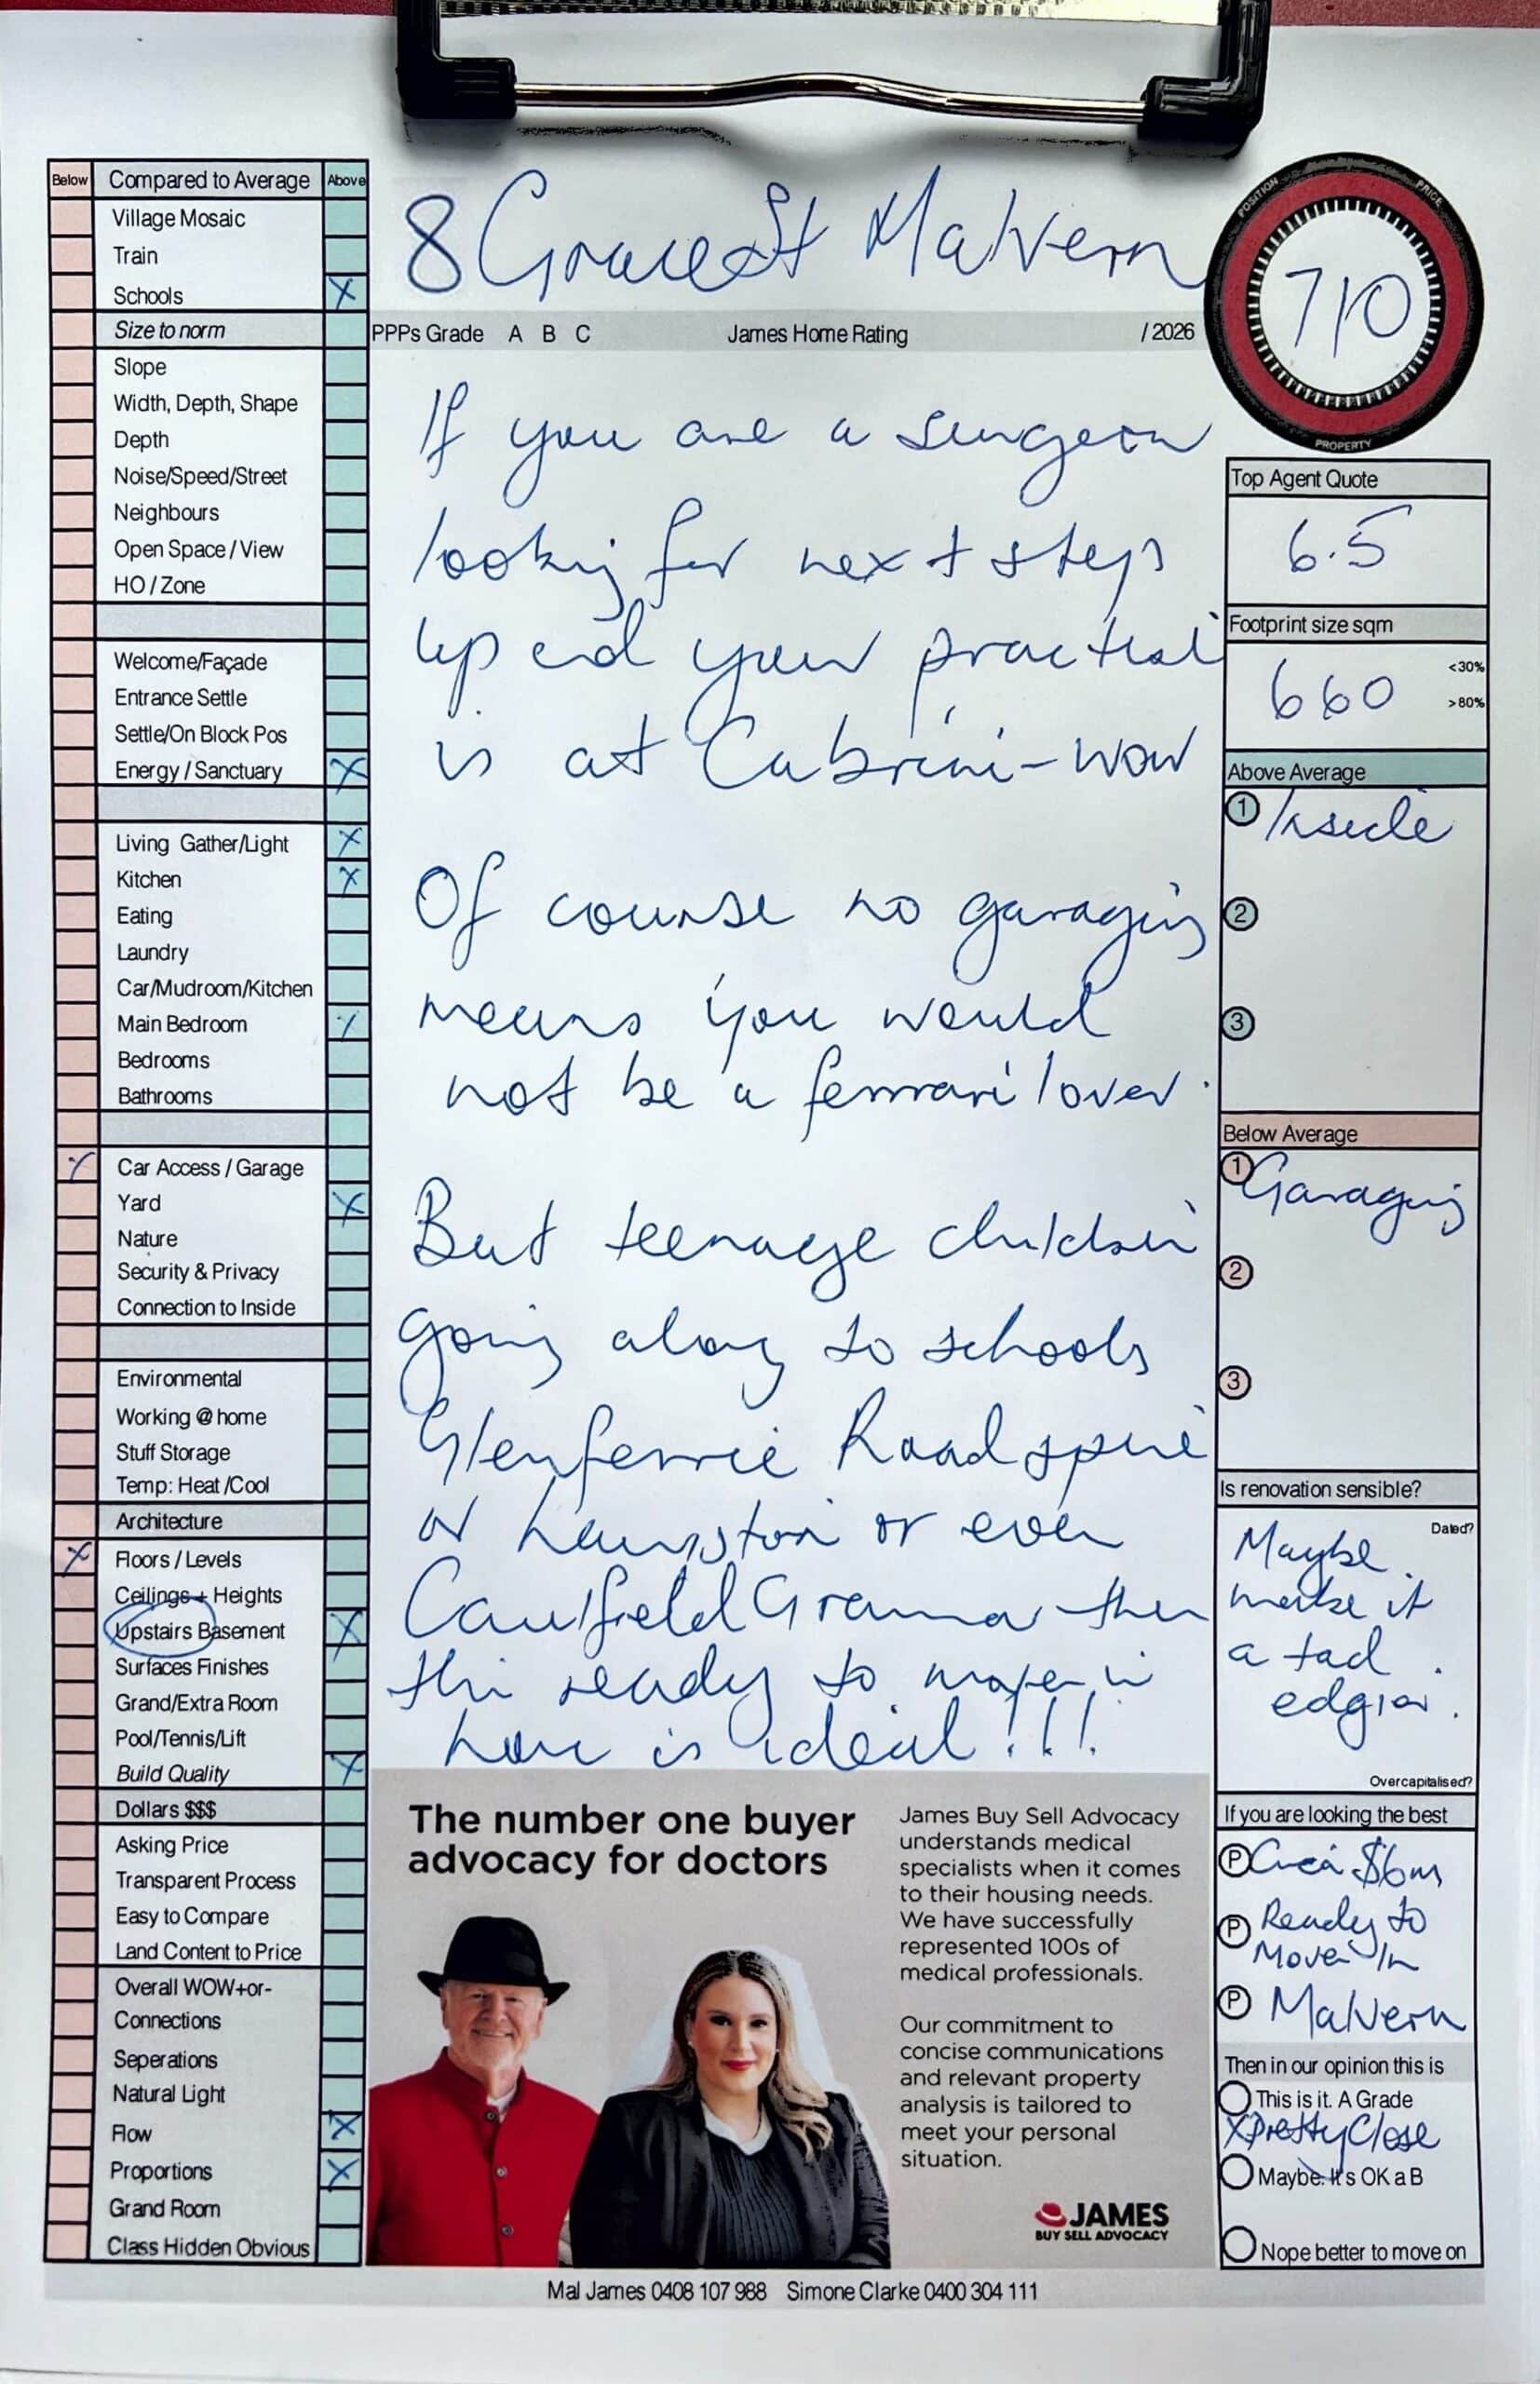 Below Compared to Average Above
Village Mosaic
Train
Schools X
Size to norm
Slope
Width, Depth, Shape
Depth
Noise/Speed/Street
Neighbours
Open Space / View
HO / Zone
Welcome/Façade
Entrance Settle
Settle/On Block Pos
Energy / Sanctuary X
Living Gather/Light X
Kitchen X
Eating
Laundry
Car/Mudroom/Kitchen
Main Bedroom X
Bedrooms
Bathrooms
X Car Access / Garage
Yard X
Nature
Security & Privacy
Connection to Inside
Environmental
Working @ home
Stuff Storage
Temp: Heat /Cool
Architecture
X Floors / Levels
Ceilings + Heights
Upstairs Basement X
Surfaces Finishes
Grand/Extra Room
Pool/Tennis/Lift
Build Quality X
Dollars $$$
Asking Price
Transparent Process
Easy to Compare
Land Content to Price
Overall WOW+or-
Connections
Seperations
Natural Light
Flow X
Proportions X
Grand Room
Class Hidden Obvious
8 Grace St Malvern
PPPs Grade A B C James Home Rating / 2026
If you are a surgeon
looking for next steps
up and your
is at Cabrini - wow
Of course no garaging
means you would
not be a ferrari lover.
But teenage children
going along to schools
Glenferrie Road spine
or or even
Caulfield Gramma then
this ready to move in
home is ideal!!!
The number one buyer
advocacy for doctors
James Buy Sell Advocacy
understands medical
specialists when it comes
to their housing needs.
We have successfully
represented 100s of
medical professionals.
Our commitment to
concise communications
and relevant property
analysis is tailored to
meet your personal
situation.
JAMES
BUY SELL ADVOCACY
POSITION
PRICE
710
PROPERTY
Top Agent Quote
6.5
Footprint size sqm
660
<30%
>80%
Above Average
1 Inside
2
3
Below Average
1 Garaging
2
3
Is renovation sensible?
Dated?
Maybe
make it
a tad
edgier.
Overcapitalised?
If you are looking the best
P Circa $6m
P Ready to
Move In
P Malvern
Then in our opinion this is
This is it. A Grade
X Pretty Close
Maybe. It's OK a B
Nope better to move on
Mal James 0408 107 988 Simone Clarke 0400 304 111